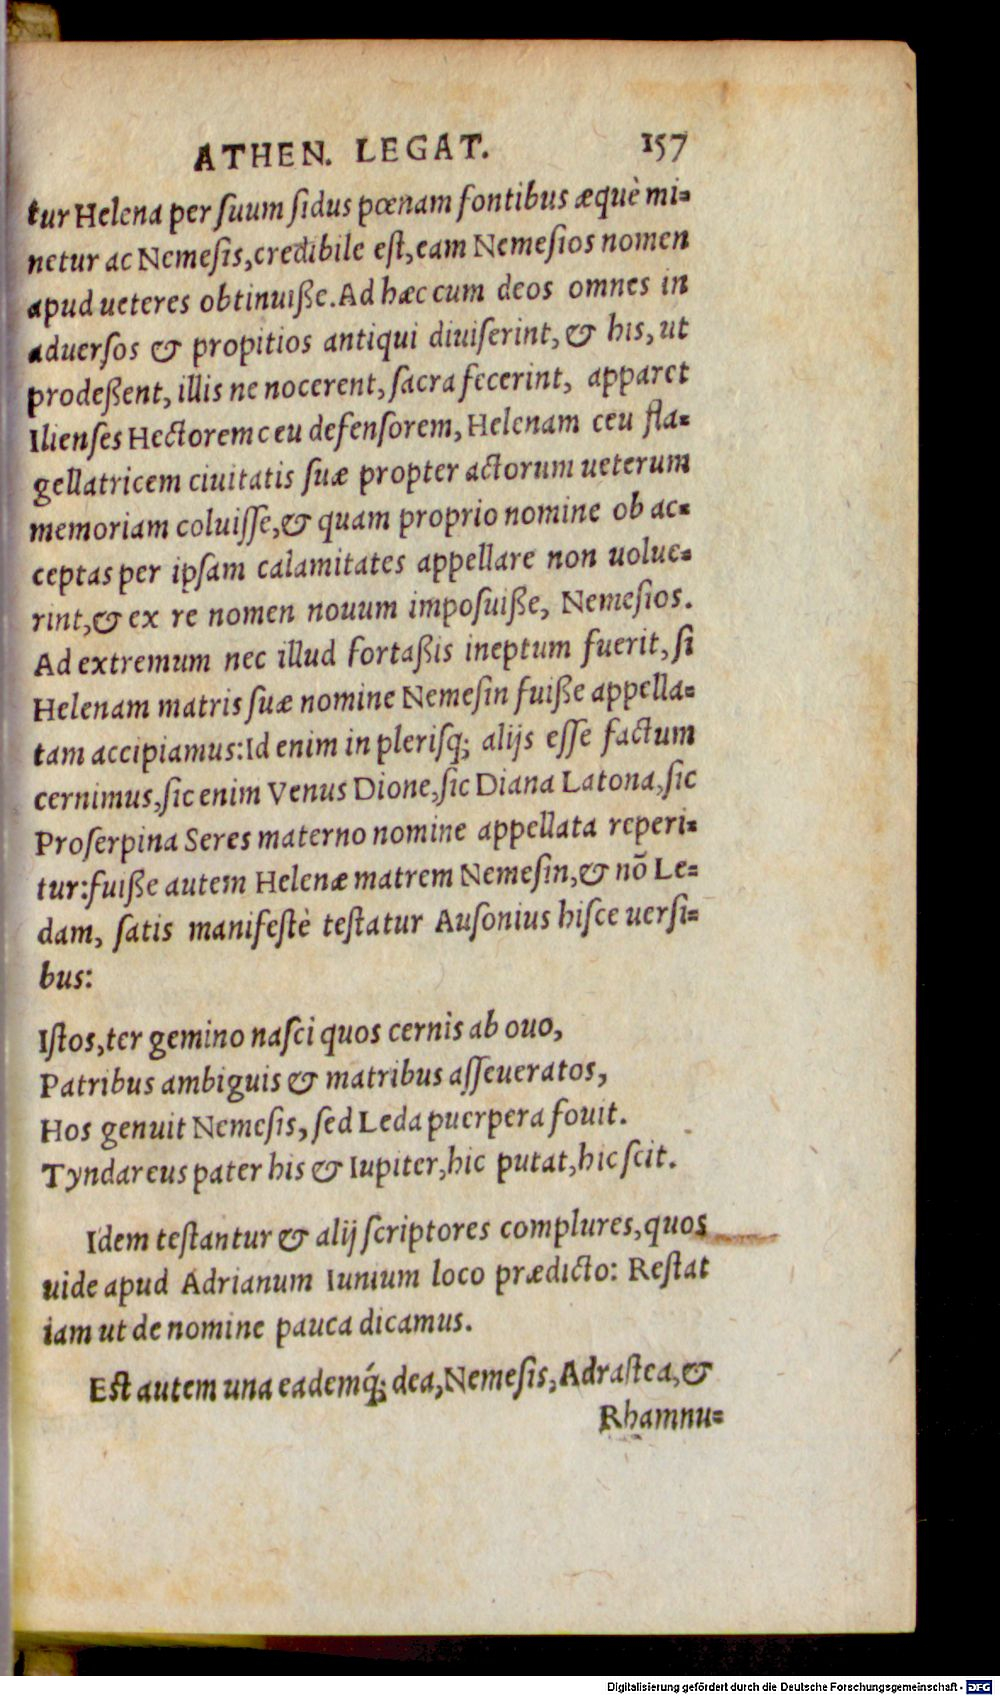 ATHEN. LEGAT. 157
tur Helena per ſuum ſidus pœnam fontibus æquè mi=
netur ac Nemeſis, credibile eſt, eam Nemeſios nomen
apud ueteres obtinuiße. Ad hæc cum deos omnes in
aduerſos & propitios antiqui diuiſerint, & his, ut
prodeßent, illis ne nocerent, ſacra fecerint, apparet
Ilienſes Hectorem ceu defenſorem, Helenam ceu fla=
gellatricem ciuitatis ſuæ propter actorum ueterum
memoriam coluiſſe, & quam proprio nomine ob ac=
ceptas per ipſam calamitates appellare non uolue=
rint, & ex re nomen nouum impoſuiße, Nemeſios.
Ad extremum nec illud fortaßis ineptum fuerit, ſi
Helenam matris ſuæ nomine Nemeſin fuiße appella=
tam accipiamus: Id enim in pleriſq; alijs eſſe factum
cernimus, ſic enim Venus Dione, ſic Diana Latona, ſic
Proſerpina Seres materno nomine appellata reperi=
tur: fuiße autem Helenæ matrem Nemeſin, & nõ Le=
dam, ſatis manifeſtè teſtatur Auſonius hiſce uerſi=
bus:
Iſtos, ter gemino naſci quos cernis ab ouo,
Patribus ambiguis & matribus aſſeueratos,
Hos genuit Nemeſis, ſed Leda puerpera fouit.
Tyndareus pater his & Iupiter, hic putat, hic ſcit.
Idem teſtantur & alij ſcriptores complures, quos
uide apud Adrianum Iunium loco prædicto: Reſtat
iam ut de nomine pauca dicamus.
Eſt autem una eademq́; dea, Nemeſis, Adraſtea, &
Rhamnu=
Digitalisierung gefördert durch die Deutsche Forschungsgemeinschaft - DFG